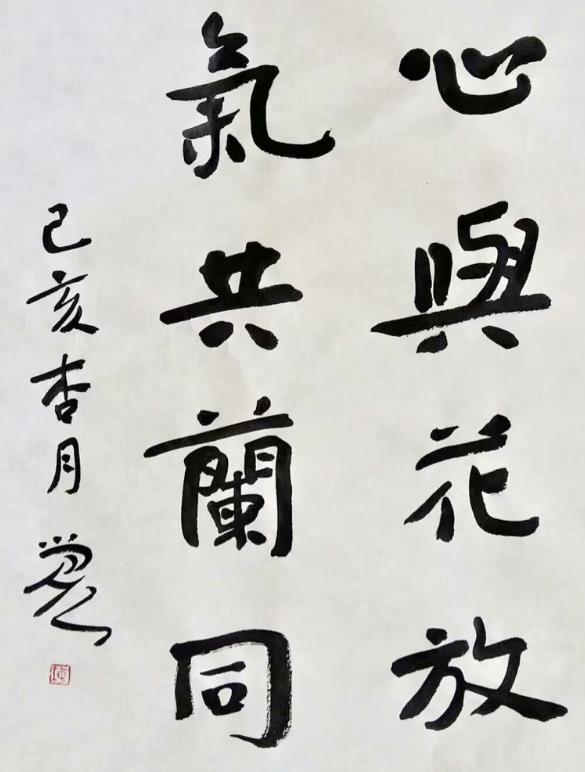 心與花放
氣共蘭同
己亥杏月